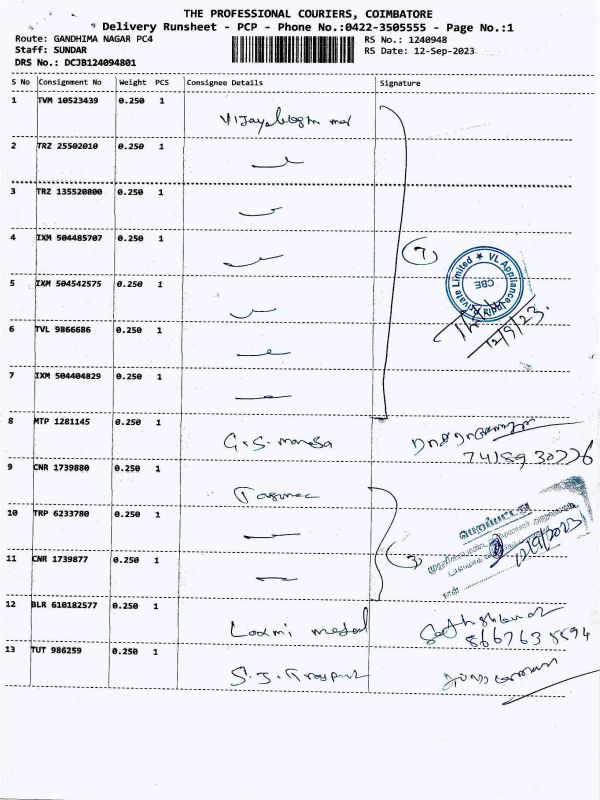 THE PROFESSIONAL COURIERS, COIMBATORE
Delivery Runsheet - PCP - Phone No.:0422-3505555 - Page No.:1
Route: GANDHIMA NAGAR PC4 RS No.: 1240948
Staff: SUNDAR RS Date: 12-Sep-2023
DRS No.: DCJB124094801
S No Consignment No Weight PCS Consignee Details Signature
1 TVM 10523439 0.250 1
2 TRZ 25502010 0.250 1
3 TRZ 135520800 0.250 1
4 IXM 504485707 0.250 1
(7)
VL Appliance Private Limited ★ CBE
5 IXM 504542575 0.250 1
12/9/23.
6 TVL 9866686 0.250 1
7 IXM 504404829 0.250 1
8 MTP 1281145 0.250 1 G.S.
74189 30776
9 CNR 1739880 0.250 1 Tasmac
பெறப்பட்டது
10 TRP 6233780 0.250 1
12/9/2023
11 CNR 1739877 0.250 1 (3)
நாள்
12 BLR 610182577 0.250 1 Laxmi
13 TUT 986259 0.250 1 S.J.